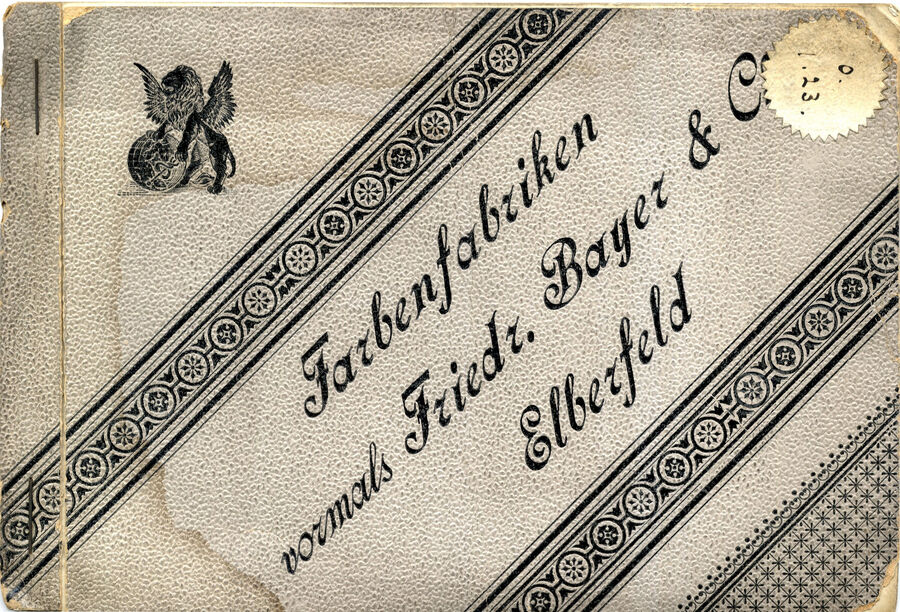 Farbenfabriken
vormals Friedr. Bayer & C
Elberfeld
0.
1.23.